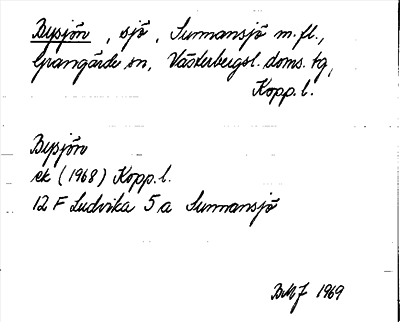 Bysjön, sjö, Sunnansjö m.fl.,
Grangärde sn, Västerbergsl. doms. tg,
Kopp. l.
Bysjön
ek (1968) Kopp. l.
12 F Ludvika 5 a Sunnansjö
BMJ 1969